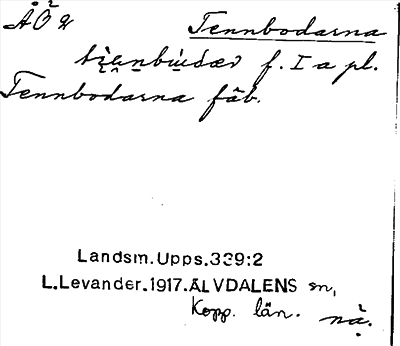 ÅÖ2 Tennbodarna
f. I a pl.
Tennbodarna fäb.
Landsm.Upps.339:2
L.Levander.1917.ÄLVDALENS sn,
Kopp. län. nä.